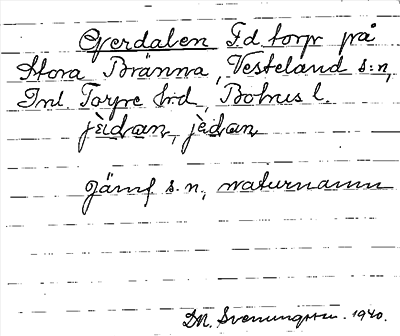 Gerdalen F.d. torp på
Stora Bränna, Vesteland s:n,
Inl. Torpe h:d, Bohus l.
jèrdan, jèrdan
Jämf s.n., naturnamn
D.N. Svenungsson. 1940.